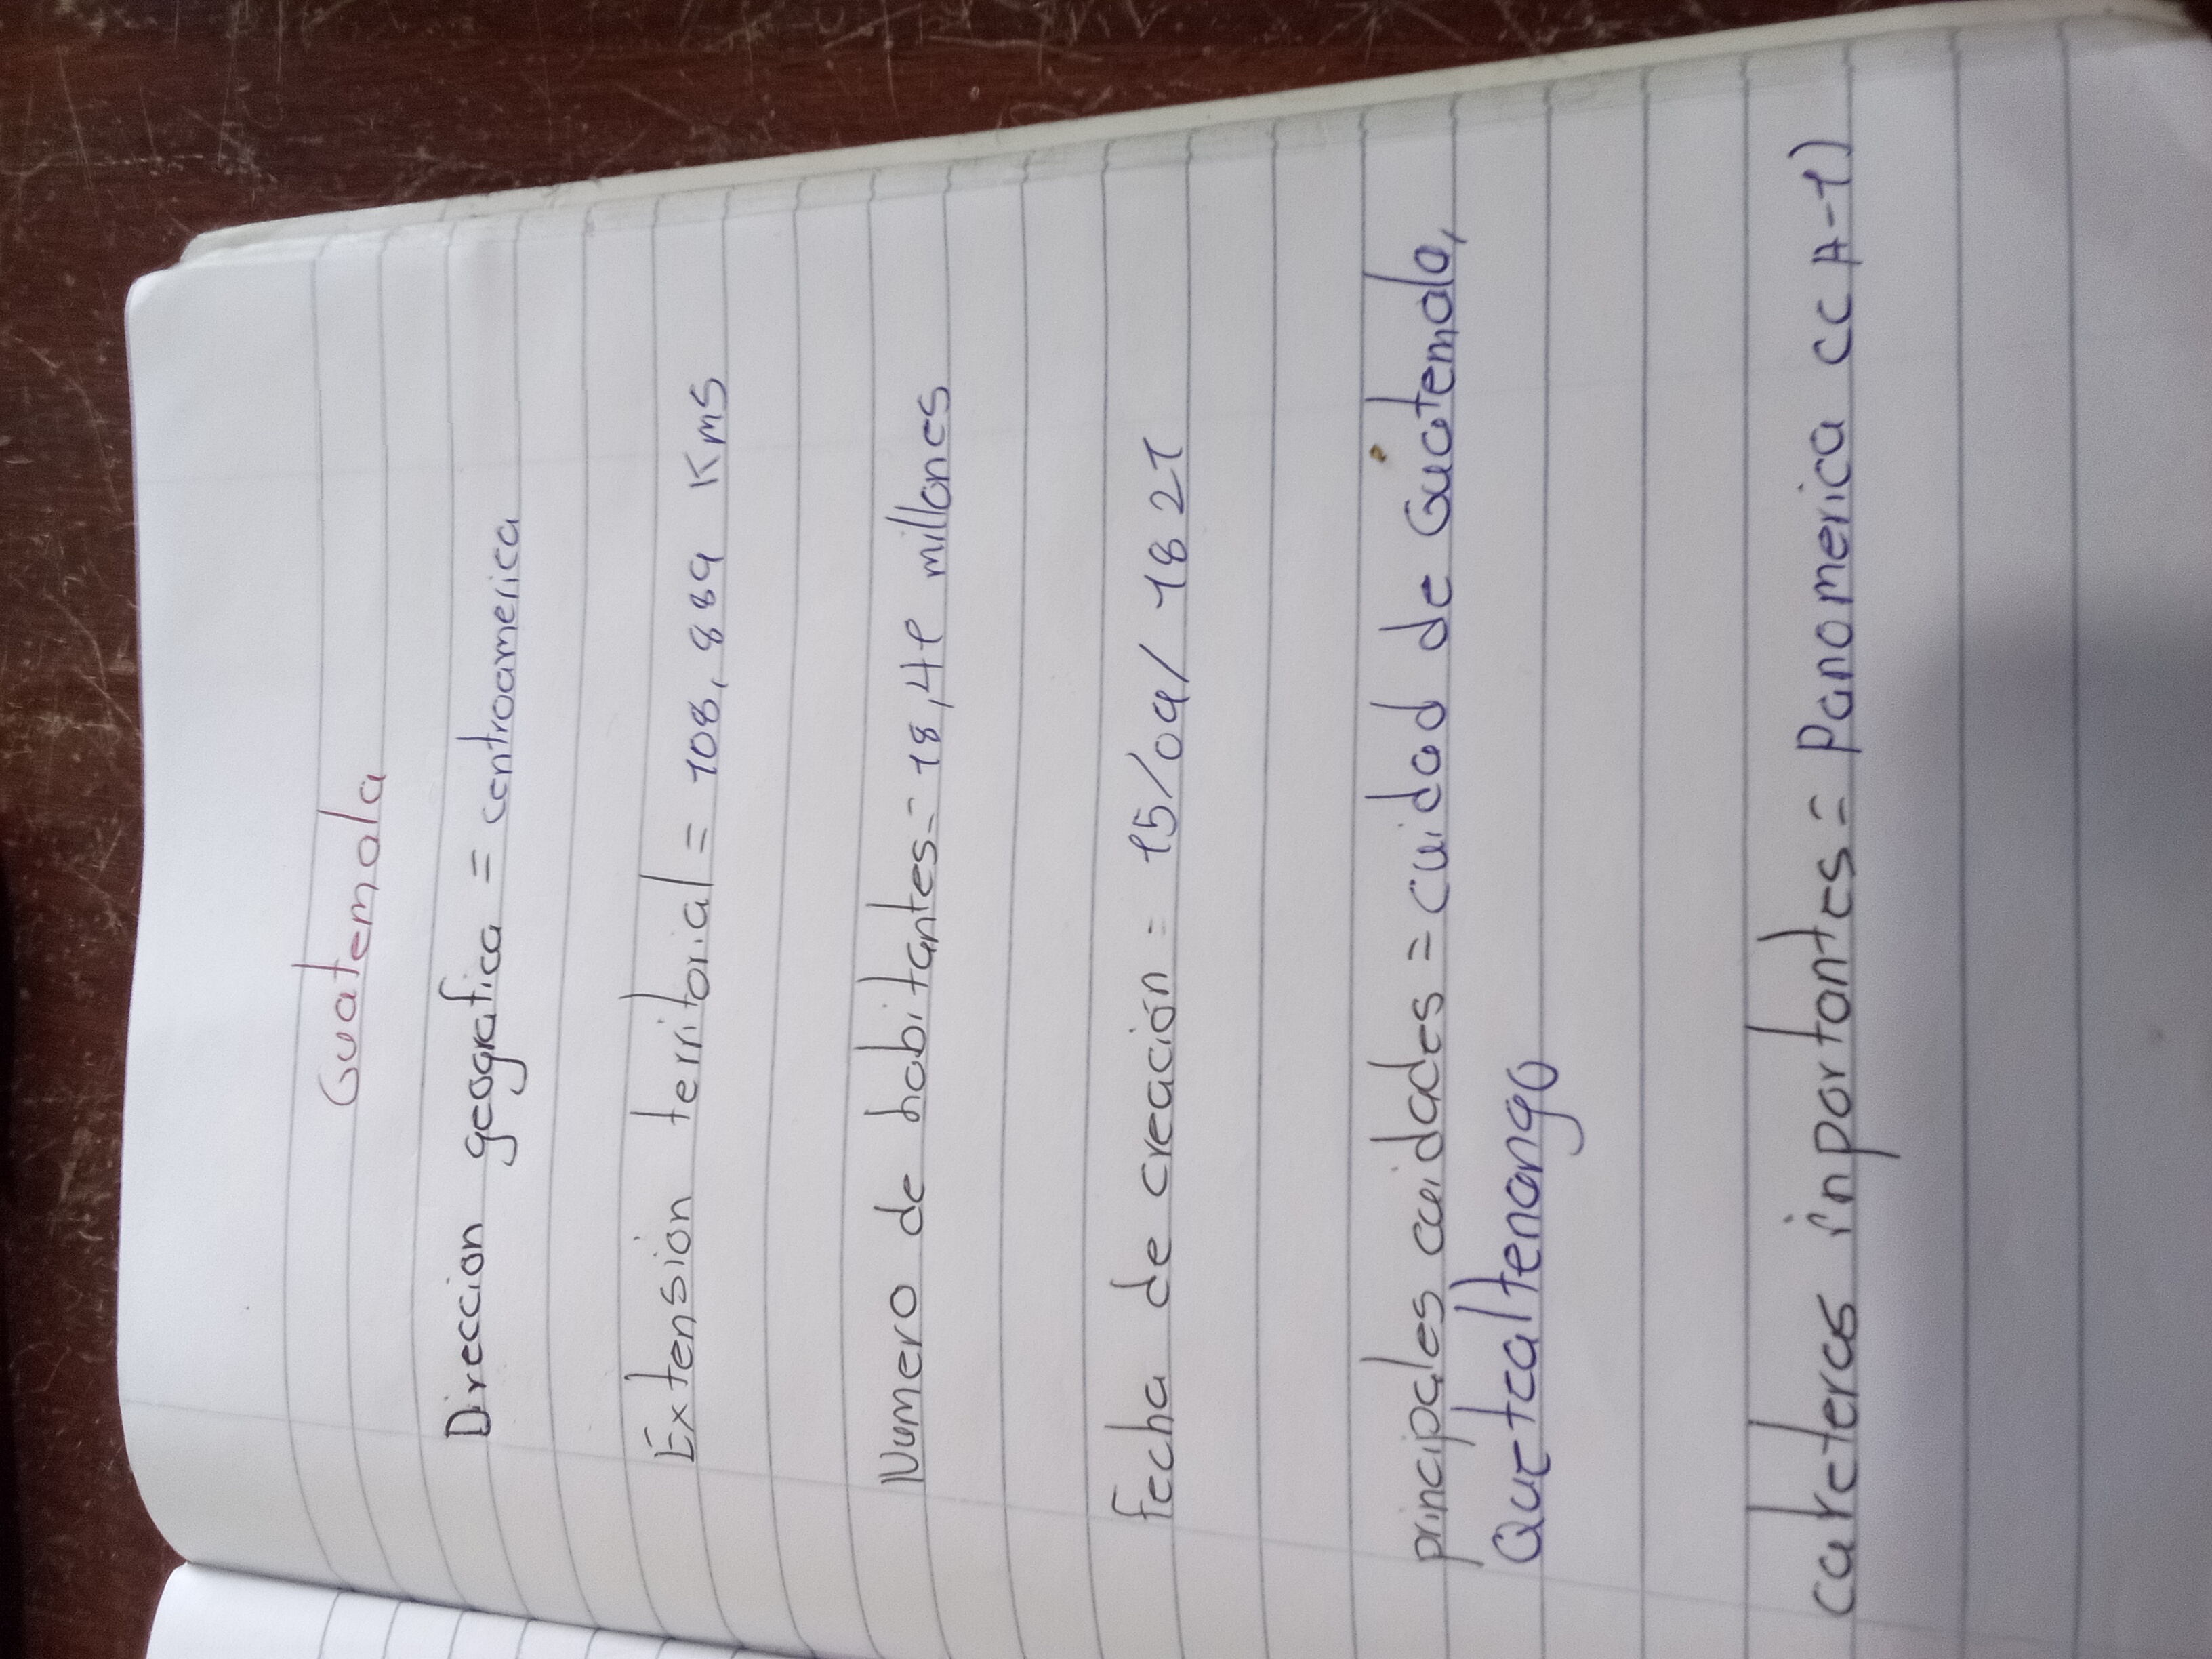 Guatemala
Direccion geografica = centroamerica
Extension territorial = 108,889 Kms
Numero de habitantes = 18,4 millones
Fecha de creación = 15/09/1821
principales cuidades = cuidad de Guatemala,
Quetzaltenango
careteras inportantes = Panomerica cc A-1)